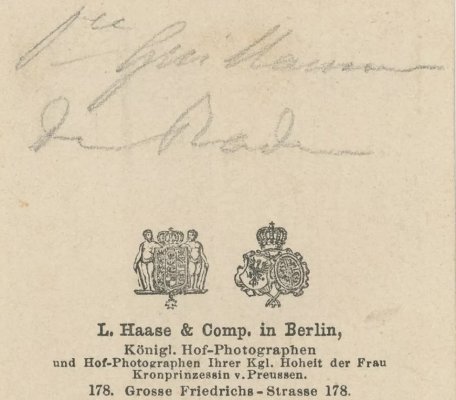 Guillaume
de Bade
L. Haase & Comp. in Berlin,
Königl. Hof-Photographen
und Hof-Photographen Ihrer Kgl. Hoheit der Frau
Kronprinzessin v. Preussen.
178. Grosse Friedrichs-Strasse 178.